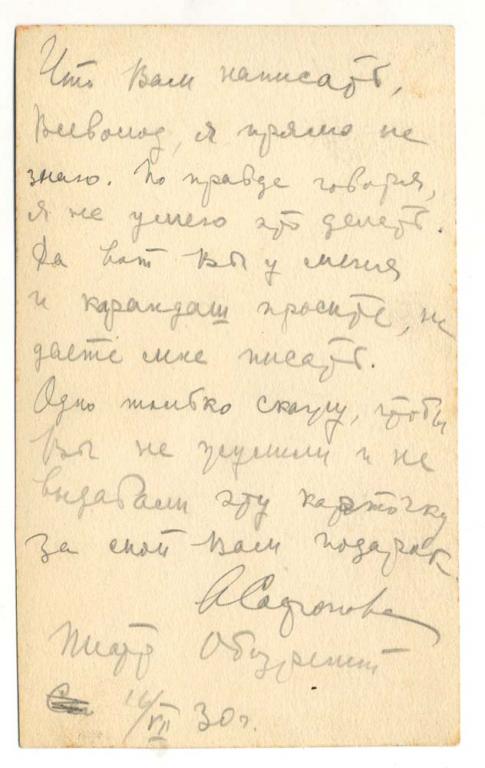 Что Вам написать,
Всеволод, я прямо не
знаю. По правде говоря,
я не умею это делать.
Да вот Вы у меня
и карандаш просите, не
даете мне писать.
Одно только скажу, чтобы
Вы не шумели и не
выдавали эту карточку
за свой Вам подарок.
АСафонова
Театр
16/VII 30 г.